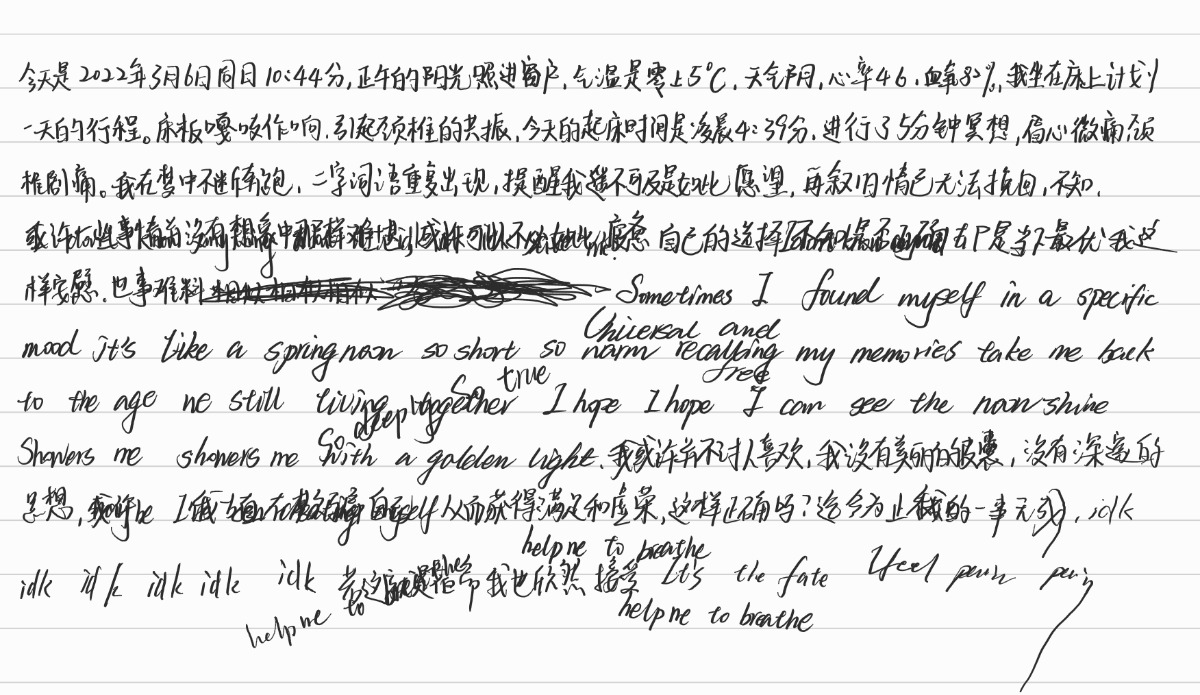 今天是2022年3月6日周日10:44分,正午的阳光照进窗户,气温是零上5℃,天气阴,心率46,血氧82%,我坐在床上计划
一天的行程。床板嘎吱作响,引起颈椎的共振,今天的起床时间是凌晨4:39分,进行了5分钟冥想,偏心微痛颈
椎剧痛。我在梦中不断奔跑,二字词语重复出现,提醒我遥不可及是如此愿望,再叙旧情已无法挽回,不知,
或许事情没有想象中那样难过 自己的选择 是当下最优 我这
样安慰,世事难料 Sometimes I found myself in a specific
Universal and
mood it's like a spring noon so short so warm recalling my memories take me back
free
So true
to the age we still living together I hope I hope I can see the noon shine
So deep
Showers me showers me with a golden light.我或许并不讨人喜欢,我没有美丽的皮囊,没有深邃的
思想, 我 在 自 self 从而获得满足和虚荣,这样正确吗?迄今为止我的一事无成,idk
help me to breathe
idk idk idk idk idk 若这就是宿命 我也欣然接受 It's the fate I feel pain pain
help me to
help me to breathe